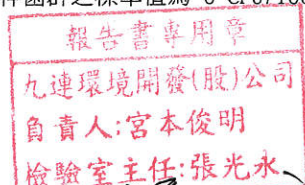 菌群之標準值為
報告書專用章
九連環境開發(股)公司
負責人:宮本俊明
檢驗室主任:張光永